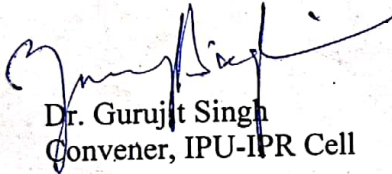 Dr. Gurujit Singh
Convener, IPU-IPR Cell